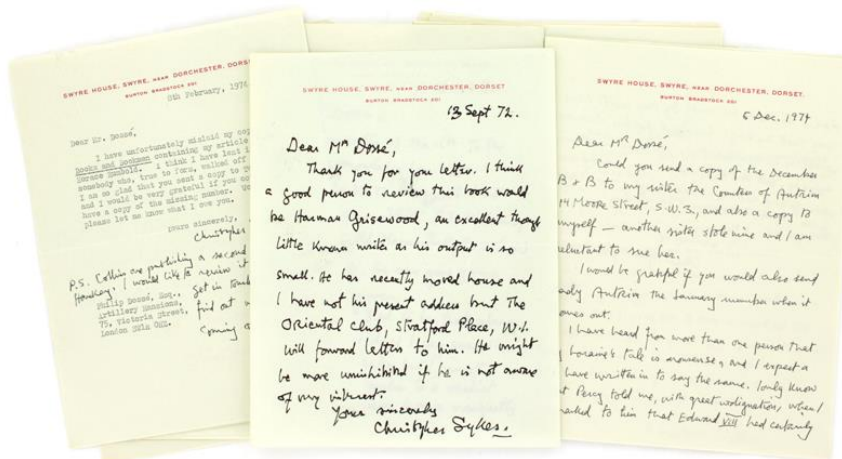 SWYRE HOUSE, SWYRE, NEAR DORCHESTER, DORSET
BURTON BRADSTOCK 201
8th February, 1974
Dear Mr. Dossé,
I have unfortunately mislaid my
Books and Bookmen containing my article
Horace Rumbold. I think I have lent i
somebody who, true to form, walked off
I am so glad that you sent a copy to
and I would be very grateful if you
have a copy of the missing number.
please let me know what I owe you.
Yours sincerely,
Christopher
P.S. Collins are publishing a second
Hankey. I would like to review it
Philip Dossé, Esq.,
get in touch
Artillery Mansions,
75, Victoria Street,
find out
London SW1H 0HZ.
coming
SWYRE HOUSE, SWYRE, NEAR DORCHESTER, DORSET
BURTON BRADSTOCK 201
13 Sept 72.
Dear Mr Dossé,
Thank you for your letter. I think
a good person to review this book would
be Harman Grisewood, an excellent though
little known writer as his output is so
small. He has recently moved house and
I have not his present address but The
Oriental Club, Stratford Place, W.1.
will forward letters to him. He might
be more uninhibited if he is not aware
of my interest.
Yours sincerely
Christopher Sykes.
SWYRE HOUSE, SWYRE, NEAR DORCHESTER, DORSET.
BURTON BRADSTOCK 201
6 Dec. 1974
Dear Mr Dossé,
Could you send a copy of the December
B & B to my sister the Countess of Antrim
Moore Street, S.W.3, and also a copy to
myself — another sister stole mine and I am
reluctant to sue her.
I would be grateful if you would also send
Lady Antrim the January number when it
comes out.
I have heard from more than one person that
Loraine's tale is nonsense, and I expect a
have written in to say the same. I only know
Percy told me, with great indignation, when I
remarked to him that Edward VIII had certainly